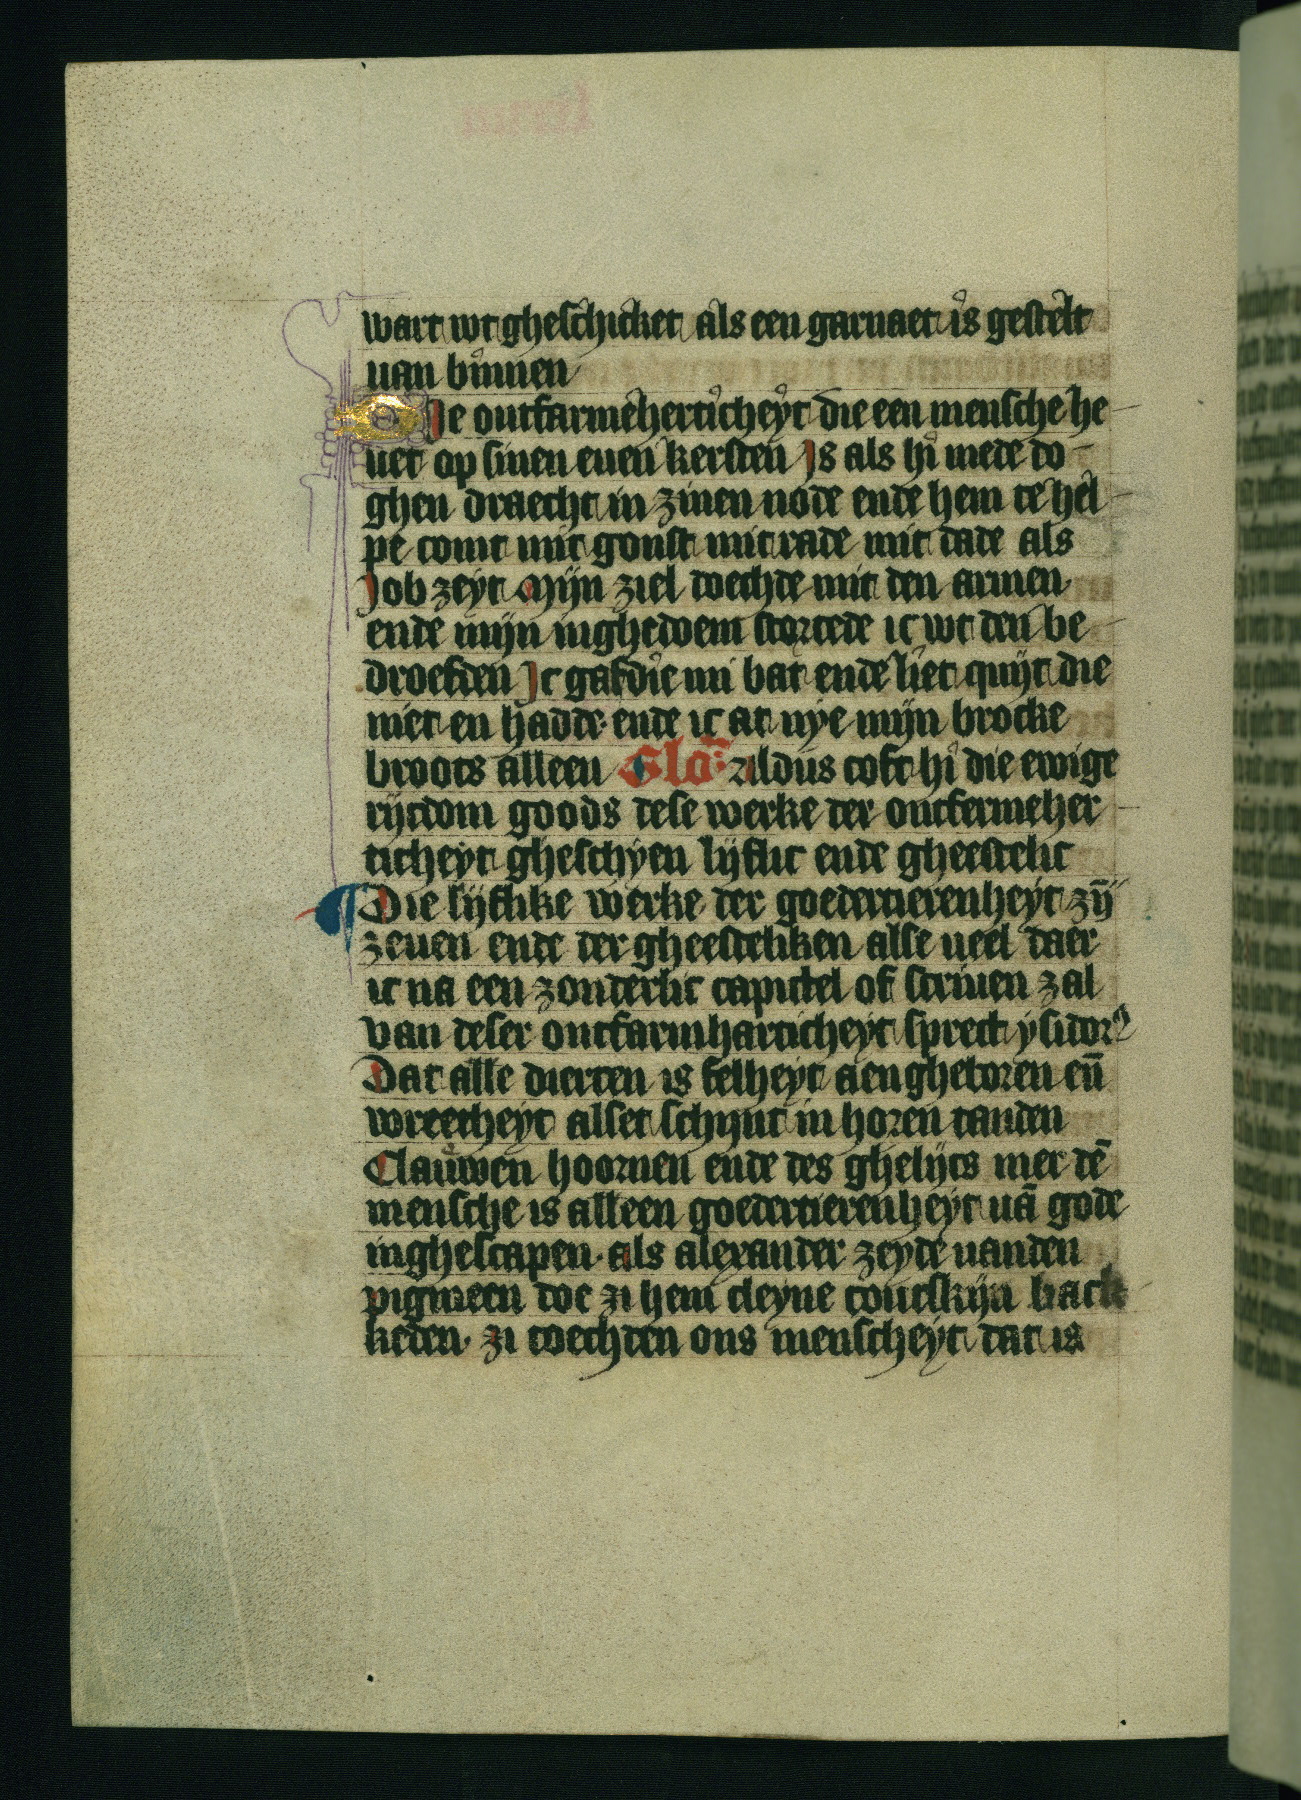 wart wt gheschicket als een garnaet is gestelt
uan binnen
Die ontfarmeherticheyt die een mensche he
uet op sinen euen kersten Is als hi mede do
ghen draecht in zinen node ende hem te hel
pe comt mit gonst mit rade mit dade als
Job zeyt Mijn ziel doechde mit den armen
ende mijn inghedoem stortede ic wt den be
droefden Ic gaf die mi bat ende liet quijt die
niet en hadde· ende ic at nye mijn brocke
broots alleen Glo᷉: Aldus coft hi die ewige
rijcdom goods dese werke der ontfermeher
ticheyt gheschyen lijflic ende gheestelic
¶ Die lijflike werke der goedertierenheyt zij̄
zeuen ende der gheesteliken alse ueel daer
ic na een zonderlic capittel of scriuen zal
van deser ontfarmharticheyt sprect ysidorꝰ
Dat alle dierten is felheyt aengheboren en̄
wreetheyt alset schijnt in horen tanden
Clauwen hoornen ende des ghelijcs mer dē
mensche is alleen goedertierenheyt uā gode
inghescapen· als alexander zeyde uanden
pigmeen doe zi hem cleyne coucskijn back
keden· zi doechden ons menscheyt dat is